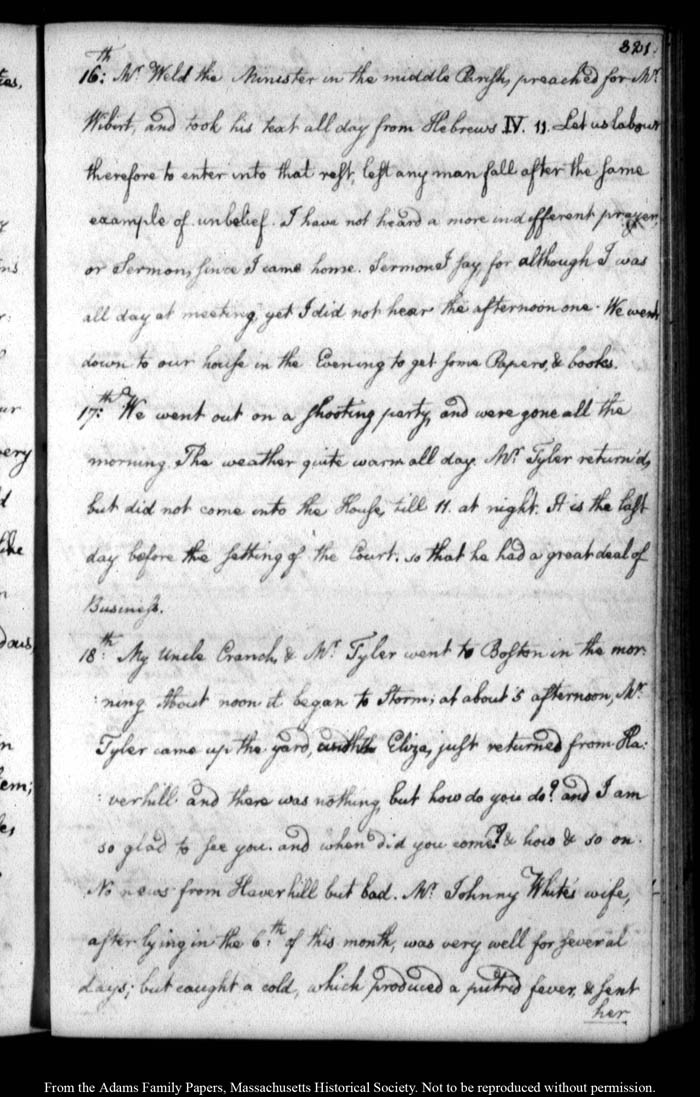 321.
16th: Mr. Weld the Minister in the middle Parish, preach'd for Mr.
Wibirt, and took his text all day from Hebrews IV. 11. Let us labour
therefore to enter into that reſt, leſt any man fall after the ſame
example of unbelief. I have not heard a more indifferent prayer,
or Sermon, ſince I came home. Sermon I ſay, for although I was
all day at meeting, yet I did not hear the afternoon one. We went
down to our houſe in the Evening to get ſome Papers, & books.
17th: We went out on a ſhooting party, and were gone all the
morning. The weather quite warm all day. Mr. Tyler return'd,
but did not come into the Houſe, till 11. at night. It is the laſt
day before the ſetting of the Court. so that he had a great deal of
Buſineſs.
18th: My Uncle Cranch, & Mr. Tyler went to Boſton in the mor:
:ning. About noon it began to Storm; at about 5 afternoon, Mr.
Tyler came up the yard, Eliza, juſt returned from Ha:
:verhill and there was nothing, but how do you do? and I am
so glad to ſee you. and when did you come? & how & so on.
No news from Haverhill but bad. Mr. Johnny White's wife,
after lying in the 6th: of this month, was very well for ſeveral
days; but caught a cold, which produced a putrid fever, & ſent
her
From the Adams Family Papers, Massachusetts Historical Society. Not to be reproduced without permission.